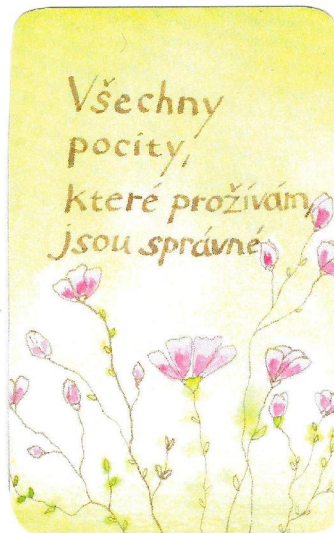 Všechny
pocity,
které prožívám,
jsou správné.